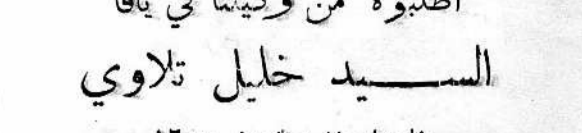 اطلبوه من وكيلنا في يافا
السيد خليل تلاوي